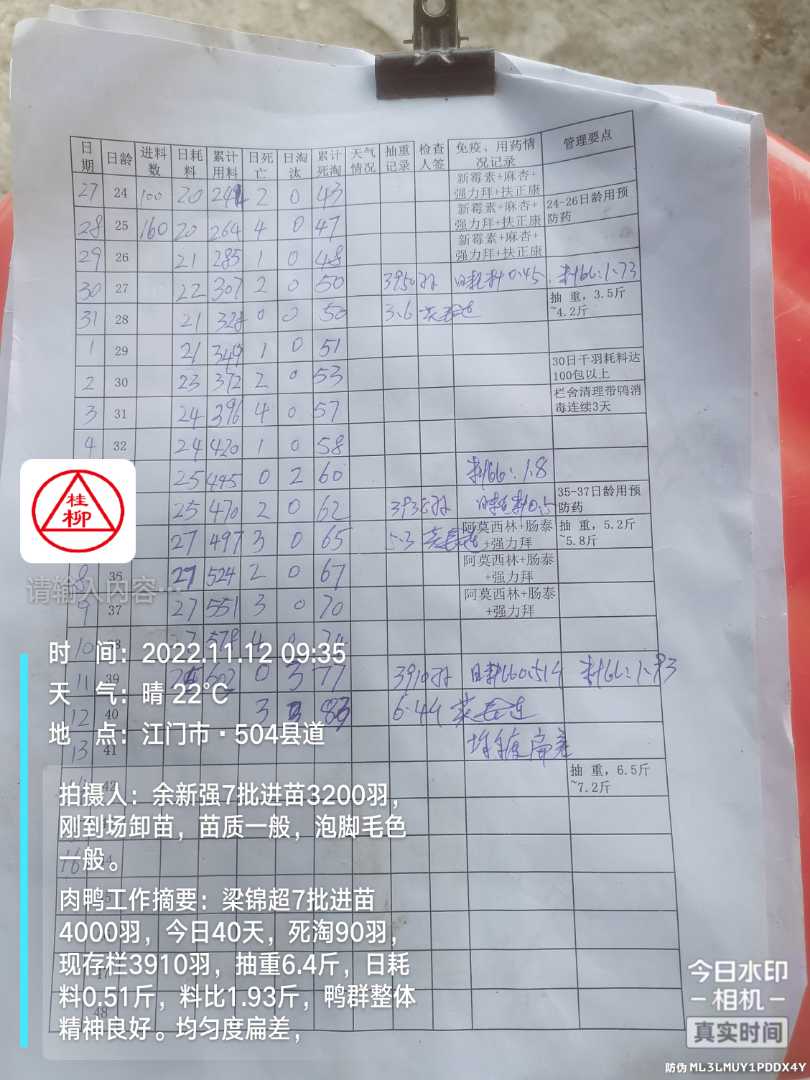 日期 日龄 进料数 日耗料 累计用料 日死亡 日淘汰 累计死淘 天气情况 抽重记录 检查人签 免疫、用药情况记录 管理要点
27 24 100 20 244 2 0 43 新霉素+麻杏+强力拜+扶正康
28 25 160 20 264 4 0 47 新霉素+麻杏+强力拜+扶正康 24-26日龄用预防药
29 26 21 285 1 0 48 新霉素+麻杏+强力拜+扶正康
30 27 22 307 2 0 50 3950羽 日耗料0.45 料比:1.73
31 28 21 328 0 0 50 3.6 抽 重,3.5斤~4.2斤
1 29 21 349 1 0 51
2 30 23 372 2 0 53 30日千羽耗料达100包以上
3 31 24 396 4 0 57 栏舍清理带鸭消毒连续3天
4 32 24 420 1 0 58
25 445 0 2 60 料比:1.8
25 470 2 0 62 3935羽 日耗料0.5 35-37日龄用预防药
27 497 3 0 65 5.3 阿莫西林+肠泰+强力拜 抽 重,5.2斤~5.8斤
8 36 27 524 2 0 67 阿莫西林+肠泰+强力拜
9 37 27 551 3 0 70 阿莫西林+肠泰+强力拜
10 38 27 578 4 0 74
11 39 602 0 3 77 3910羽 料比:1.93
12 40 3 83 6.44
13 41 均匀度扁差
抽 重,6.5斤~7.2斤
16
48
桂柳
请输入内容…
时 间:2022.11.12 09:35
天 气:晴 22℃
地 点:江门市·504县道
拍摄人:余新强7批进苗3200羽,
刚到场卸苗,苗质一般,泡脚毛色
一般。
肉鸭工作摘要:梁锦超7批进苗
4000羽,今日40天,死淘90羽,
现存栏3910羽,抽重6.4斤,日耗
料0.51斤,料比1.93斤,鸭群整体
精神良好。均匀度扁差,
今日水印
相机
真实时间
防伪 ML3LMUY1PDDX4Y